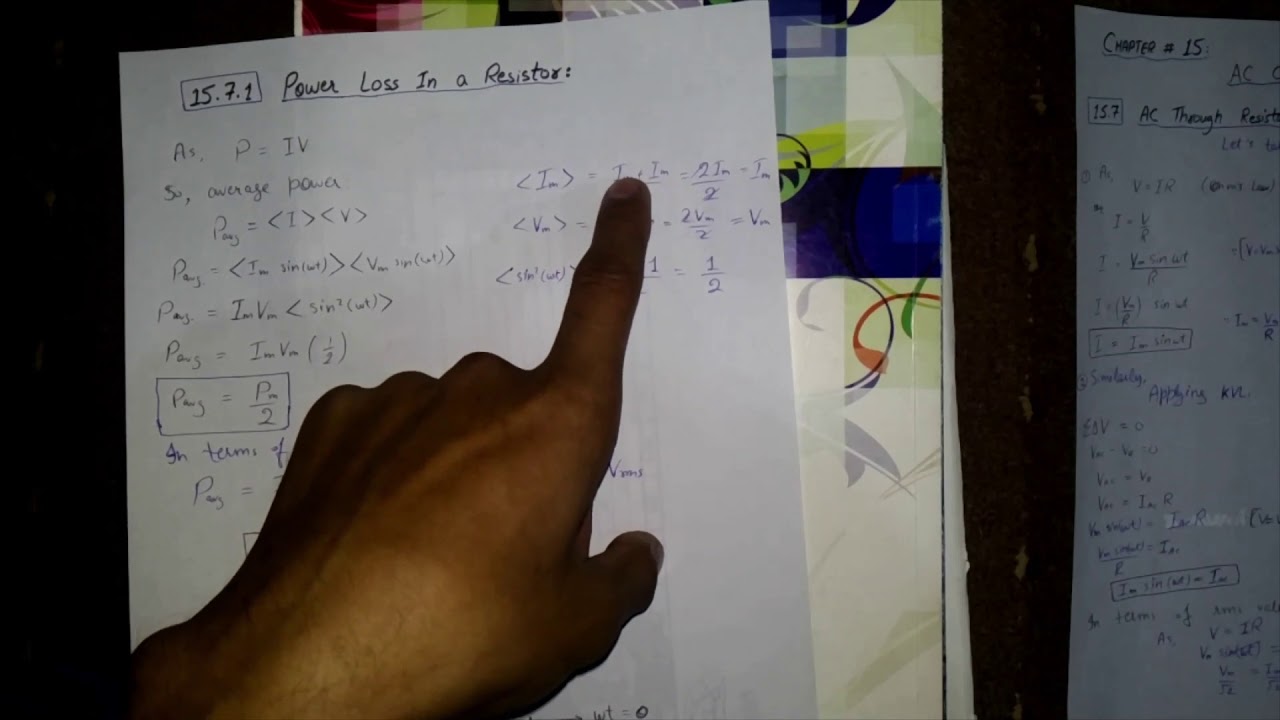 15.7.1 Power Loss In a Resistor:
As, P = IV
So, average power
P_avg = <I><V>
P_avg = <I_m sin(wt)><V_m sin(wt)>
P_avg = I_m V_m <sin²(wt)>
P_avg = I_m V_m (1/2)
P_avg = P_m/2
In terms of
P_avg =
V_rms
<I_m> = I + I_m = 2I_m/2 = I_m
<V_m> = = 2V_m/2 = V_m
<sin²(wt)> 1 = 1/2
wt = 0
CHAPTER # 15:
AC
15.7 AC Through Resist
Let's ta
① As,
V = IR (Ohm's Law)
I = V/R
I = V_m sin wt/R
I = (V_m/R) sin wt
= I_m = V_m/R
I = I_m sin wt
② Similarly,
Applying KVL
ΣΔV = 0
V_ac - V_R = 0
V_ac = V_R
V_ac = I_ac R
V_m sin(wt) = I_ac R
V_m sin(wt)/R = I_ac
I_m sin(wt) = I_ac
In terms of rms val
As, V = IR
V_m sin(wt) =
V_m/√2 = I_m/√2